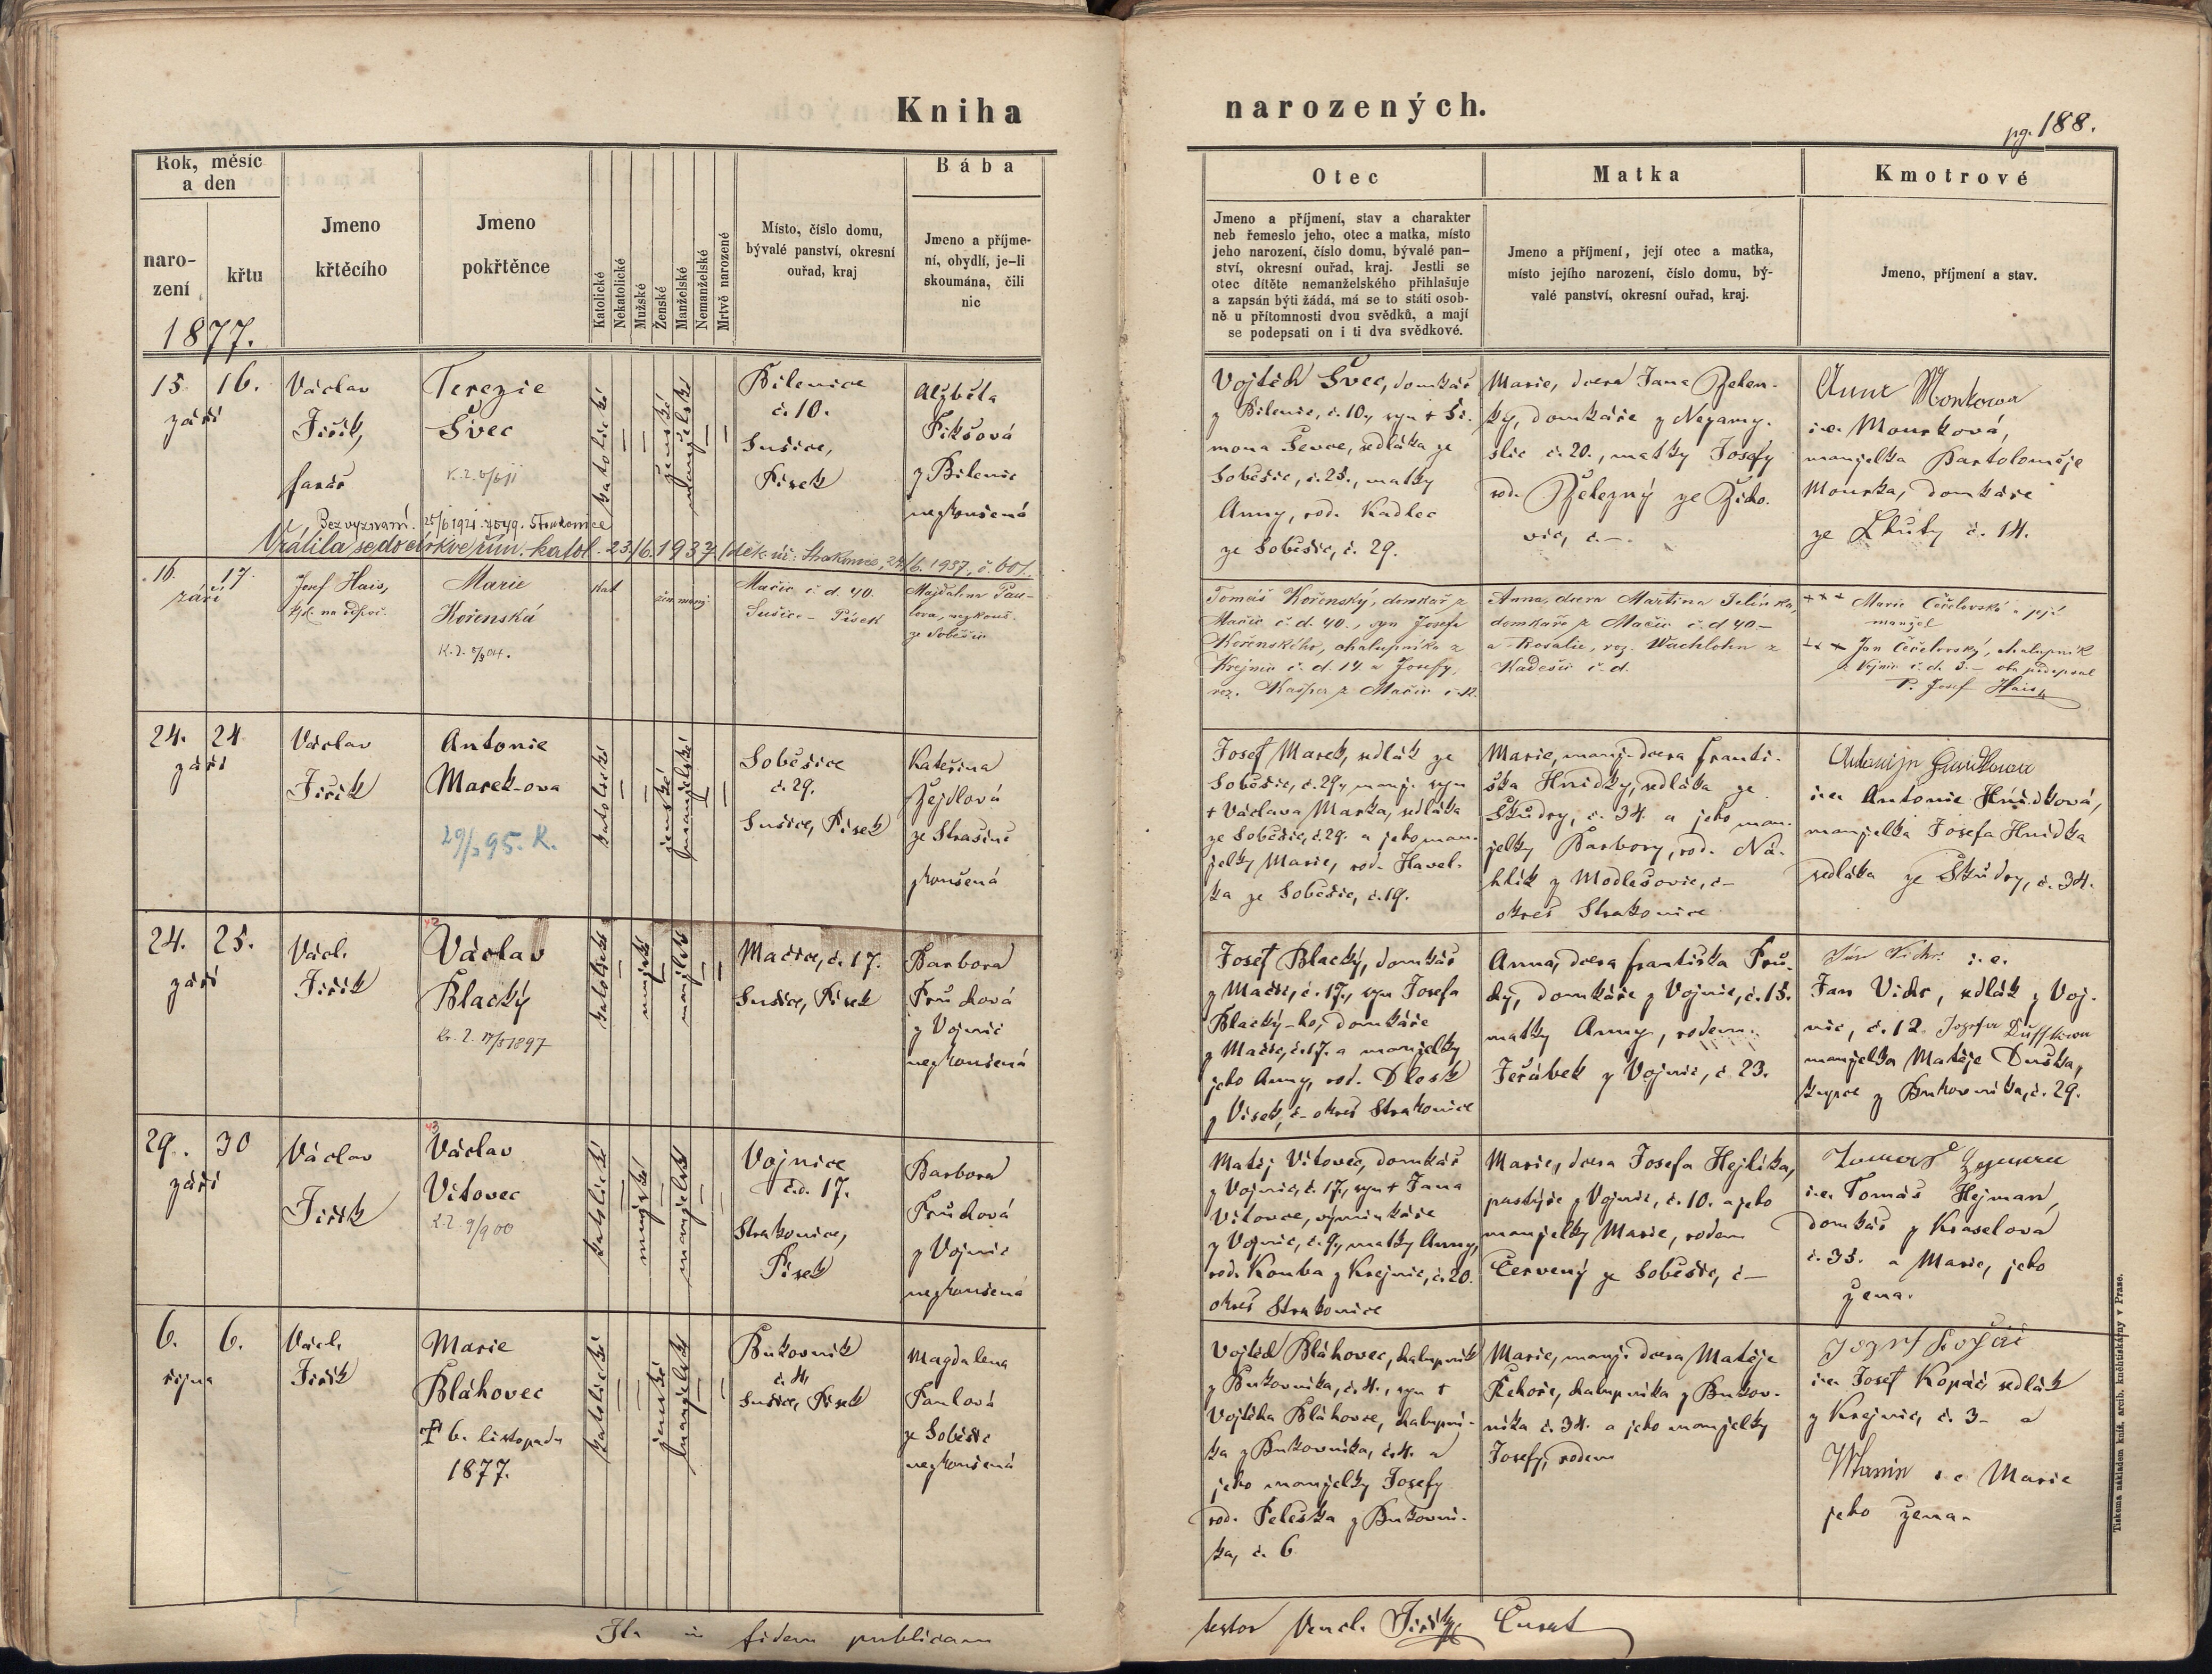 Kniha narozených.
pg. 188.
Rok, měsíc a den
narození
křtu
Jmeno křtěcího
Jmeno pokřtěnce
Katolické
Nekatolické
Mužské
Ženské
Manželské
Nemanželské
Mrtvě narozené
Místo, číslo domu, bývalé panství, okresní ouřad, kraj
Bába
Jmeno a příjmení, obydlí, je-li skoumána, čili nic
Otec
Jmeno a příjmení, stav a charakter
neb řemeslo jeho, otec a matka, místo
jeho narození, číslo domu, bývalé pan-
ství, okresní ouřad, kraj. Jestli se
otec dítěte nemanželského přihlašuje
a zapsán býti žádá, má se to státi osob-
ně u přítomnosti dvou svědků, a mají
se podepsati on i ti dva svědkové.
Matka
Jmeno a příjmení, její otec a matka,
místo jejího narození, číslo domu, bý-
valé panství, okresní ouřad, kraj.
Kmotrové
Jmeno, příjmení a stav.
1877.
15. 16.
září
Václav
Jiřík,
farář
Terezie
Švec
katolické
ženské
manželské
Bilenice
č. 10.
Sušice,
Písek
Alžběta
Fikšová
z Bilenic
nezkoušená
Vojtěch Švec, domkář
z Bilenic, č. 10., syn + Ši-
mona Ševce, sedláka ze
Soběšic, č. 25., matky
Anny, rod. Kadlec
ze Soběšic, č. 29.
Marie, dcera Jana Želez-
ký, domkáře z Nezamy-
slic č. 20., matky Josefy
rod. Železný ze Žiho-
vic, č. -.
i.e. Mourková,
manželka Bartoloměje
Mourka, domkáře
ze Lhuty č. 14.
Bez vyznání. 25/6 1921. Strakonice
Vrátila se do církve řím. katol. 23./6. 1937
16. 17.
září
Josef Hais,
Marie
Kořenská
kat
žen.
manž.
Mačic č. d. 40.
Sušice - Písek
Majdalena Pau-
lova, nezkouš.
ze Soběšic
Tomáš Kořenský, domkář z
Mačic č. d. 40., syn Josefa
Kořenského, chalupníka z
Krejnic č. d. 14 a Josefy,
roz. Kašpar z Mačic
Anna, dcera Martina Jelínka,
domkaře z Mačic č. d 40 -
a Rosalie, roz. Wachlohn z
Kadešic č. d.
+++ Marie Čečelovská a její
manžel
+++ Jan Čečelovský, chalupník
z Vojnic č. d. 3. - oba podepsal
P. Josef Hais
24. 24
září
Václav
Jiřík
Antonie
Marek-ova
29/1 95. K.
katolické
ženské
manželské
Soběšice
č. 29.
Sušice, Písek
Kateřina
Žejdlová
ze Strašína
zkoušená
Josef Marek, sedlák ze
Soběšic, č. 29., manž. syn
+ Václava Marka, sedláka
ze Soběšic, č. 29. a jeho man-
želky Marie, rod. Havel-
ka ze Soběšic, č. 19.
Marie, manž. dcera Franti-
ška Hnidky, sedláka ze
Škůdry, č. 34. a jeho man-
želky Barbory, rod. Ná-
hlík z Modlešovic, č -
okres Strakonice
i.e. Antonie Hnidková,
manželka Josefa Hnidka
sedláka ze Škůdry, č. 34.
24. 25.
září
Václ.
Jiřík
Václav
Blacký
katolické
mužské
manželské
Mačice, č. 17.
Sušice, Písek
Barbora
Průchová
z Vojnic
nezkoušená
Josef Blacký, domkář
z Mačic, č. 17., syn Josefa
Blacký-ho, domkáře
z Mačic, č. 17. a manželky
jeho Anny, rod. Dlosk
z Vísek, č - okres Strakonice
Anna, dcera Františka Prů-
chy, domkáře z Vojnic, č. 15.
matky Anny, rodem
Jeřábek z Vojnic, č 23.
Jan Vichr i.e.
Jan Vichr, sedlák z Voj-
nic, č. 12.
manželka Matěje Duška,
kupce z Bukovníka, č. 29.
29. 30
září
Václav
Jiřík
Václav
Vitovec
K.Z. 9/9 00
katolické
mužské
manželské
Vojnice
č.d. 17.
Strakonice,
Písek
Barbora
Průchová
z Vojnic
nezkoušená
Matěj Vitovec, domkář
z Vojnic, č. 17., syn + Jana
Vitovce, výminkáře
z Vojnic, č. 9., matky Anny,
rod. Kouba z Krejnic, č. 20.
okres Strakonice
Marie, dcera Josefa Hejlíka,
pastýře z Vojnic, č. 10. a jeho
manželky Marie, rodem
Červený ze Soběšic, č -
i.e. Tomáš Hejman,
domkář z Kraselova
č. 35. a Marie, jeho
žena.
6. 6.
října
Václ.
Jiřík
Marie
Bláhovec
+ 6. listopadu
1877.
katolické
ženské
manželské
Bukovník
č. 4,
Sušice, Písek
Magdalena
Paulová
ze Soběšic
nezkoušená
Vojtěch Bláhovec, chalupník
z Bukovníka, č. 4., syn +
Vojtěcha Bláhovce, chalupní-
ka z Bukovníka, č. 4. a
jeho manželky Josefy
rod. Peleška z Bukovní-
ka, č. 6
Marie, manž. dcera Matěje
Řehoře, chalupníka z Bukov-
níka č. 34. a jeho manželky
Josefy, rodem
Josef Kopáč
i.e. Josef Kopáč, sedlák
z Krejnic, č. 3 - a
i.e. Marie
jeho žena.
Ita in fidem publicam
testor Vencl. Jiřík, Curat
Tiskem a nákladem kníž. arcib. knihtiskárny v Praze.